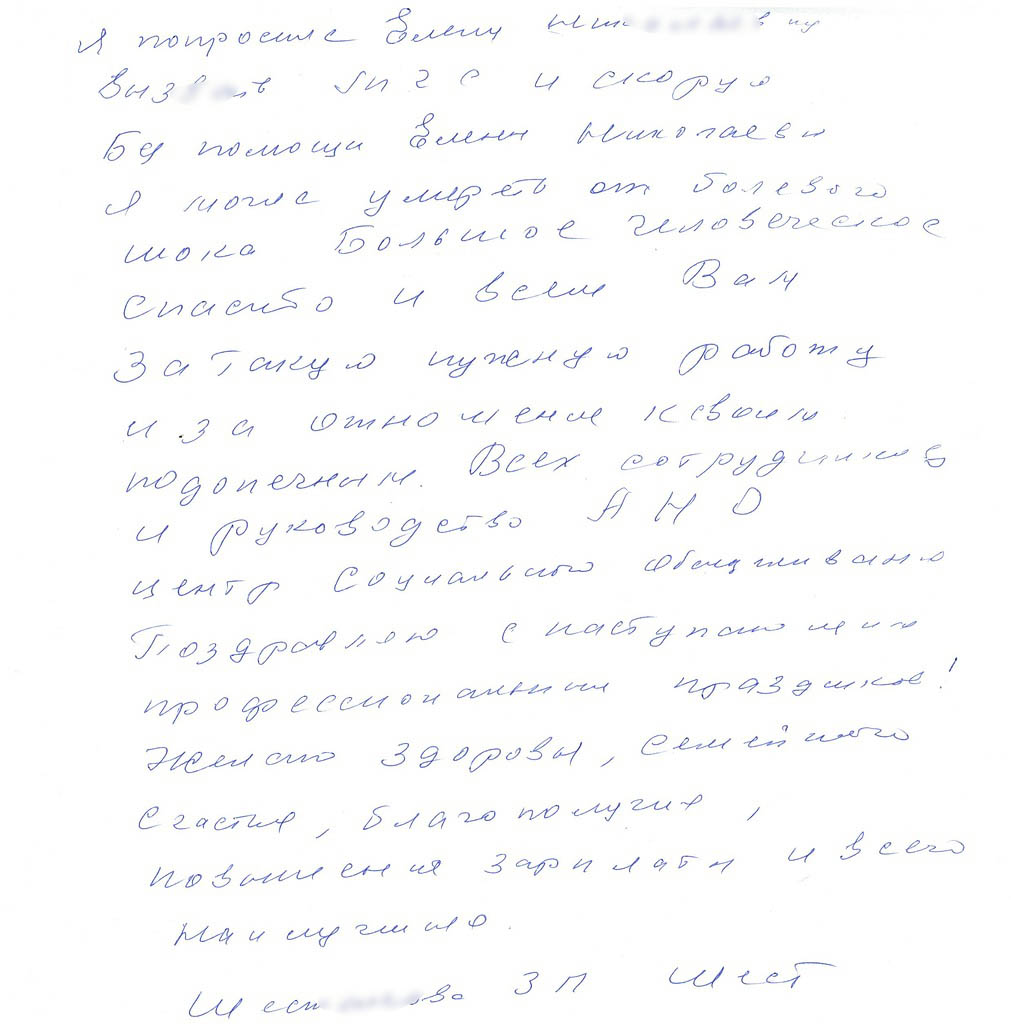 Я попросила Елену
и скорую
Без помощи Елены Николаевны
я могла умереть от болевого
шока Большое человеческое
спасибо и всем Вам
За такую нужную работу
и за отношение к своим
подопечным. Всех сотрудников
и руководство АНО
центр Социального обслуживания
Поздравляю с наступающим
профессиональным праздником!
Желаю здоровья, семейного
счастья, благополучия,
повышения зарплаты и всего
наилучшего.
ЗП Шест